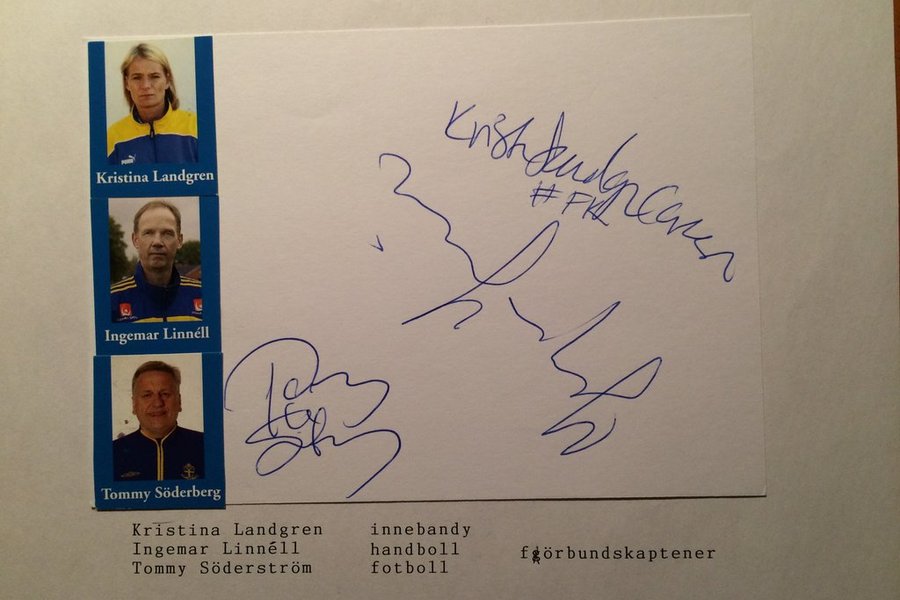 Kristina Landgren
Ingemar Linnéll
Tommy Söderberg
#FKL
Kristina Landgren innebandy
Ingemar Linnéll handboll förbundskaptener
Tommy Söderström fotboll